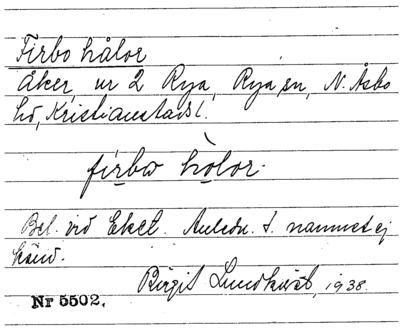 Firbo hålor
Åker ur 2 Rya, Rya sn, N. Åsbo
hd, Kristianstads l.
firbω hòlor.
Bel. vid Eket. Anledn. t. namnet ej
känd.
Birgit Lundkvist, 1938.
Nr 5502.